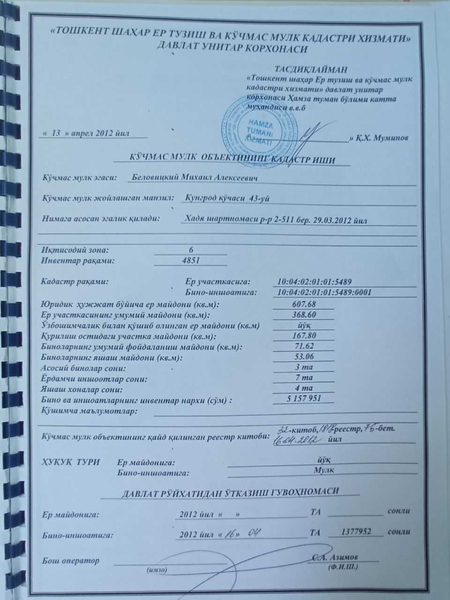 «ТОШКЕНТ ШАҲАР ЕР ТУЗИШ ВА КЎЧМАС МУЛК КАДАСТРИ ХИЗМАТИ»
ДАВЛАТ УНИТАР КОРХОНАСИ
ТАСДИҚЛАЙМАН
«Тошкент шаҳар Ер тузиш ва кўчмас мулк
кадастри хизмати» давлат унитар
корхонаси Ҳамза туман бўлими катта
муҳандиси в.в.б
HAMZA
TUMANI
XIZMATI
« 13 » апрел 2012 йил
» Қ.Х. Муминов
КЎЧМАС МУЛК ОБЪЕКТИНИНГ КАДАСТР ИШИ
Кўчмас мулк эгаси: Беловицкий Михаил Алексеевич
Кўчмас мулк жойлашган манзил: Кунгрод кўчаси 43-уй
Нимага асосан эгалик қилади: Хадя шартномаси р-р 2-511 бер. 29.03.2012 йил
Иқтисодий зона: 6
Инвентар рақами: 4851
Кадастр рақами: Ер участкасига: 10:04:02:01:01:5489
Бино-иншоатига: 10:04:02:01:01:5489:0001
Юридик ҳужжат бўйича ер майдони (кв.м): 607.68
Ер участкасининг умумий майдони (кв.м): 368.60
Ўзбошимчалик билан қўшиб олинган ер майдони (кв.м) йўқ
Қурилиш остидаги участка майдони (кв.м): 167.80
Биноларнинг умумий фойдаланиш майдони (кв.м): 71.62
Биноларнинг яшаш майдони (кв.м): 53.06
Асосий бинолар сони: 3 та
Ёрдамчи иншоотлар сони: 7 та
Яшаш хоналар сони: 4 та
Бино ва иншоатларнинг инвентар нархи (сўм) : 5 157 951
Қўшимча маълумотлар:
Кўчмас мулк объектининг қайд қилинган реестр китоби: 32-китоб, реестр, 76-бет.
16.04.2012 йил
ҲУҚУҚ ТУРИ Ер майдонига: йўқ
Бино-иншоатига: Мулк
ДАВЛАТ РЎЙХАТИДАН ЎТКАЗИШ ГУВОҲНОМАСИ
Ер майдонига: 2012 йил « » ТА сонли
Бино-иншоатига: 2012 йил « 16 » 04 ТА 1377952 сонли
Бош оператор С.А. Азимов
(имзо) (Ф.И.Ш.)